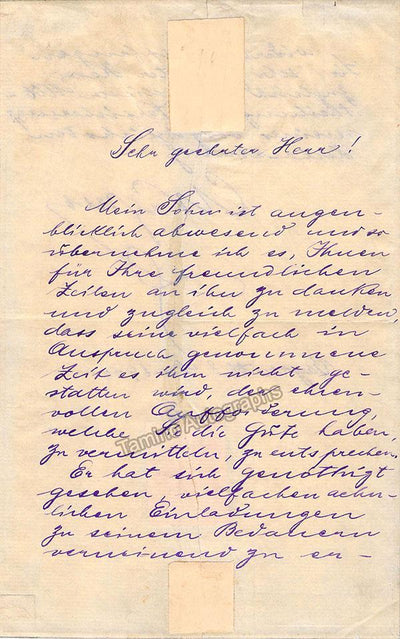 Sehr geehrter Herr!
Mein Sohn ist augen-
blicklich abwesend und so
übernehme ich es, Ihnen
für Ihre freundlichen
Zeilen an ihn zu danken
und zugleich zu melden,
dass seine vielfach in
Anspruch genommene
Zeit es ihm nicht ge-
statten wird, der ehren-
vollen Aufforderung,
welche Sie die Güte haben,
zu vermitteln, zu entsprechen.
Er hat sich genöthigt
gesehen, vielfachen aehn-
lichen Einladungen
zu seinem Bedauern
verneinend zu er-
Tamino Autographs